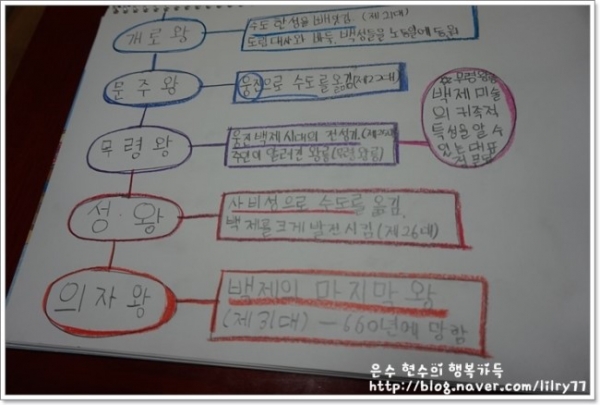 수도 한성을 빼앗김 (제21대)
개로왕
도림대사와 바둑, 백성들을 노역에 동원
문주왕
웅진으로 수도를 옮김(제22대)
무령왕
웅진 백제시대의 전성기
주인이 알려진 왕릉(무령왕릉)
백제 미술
의 귀족적
특성을 알 수
있는 대표
성·왕
사비성으로 수도를 옮김.
백제를 크게 발전시킴(제26대)
의자왕
백제의 마지막 왕
(제31대) - 660년에 망함
은수 현수의 행복가득
http://blog.naver.com/lilry77